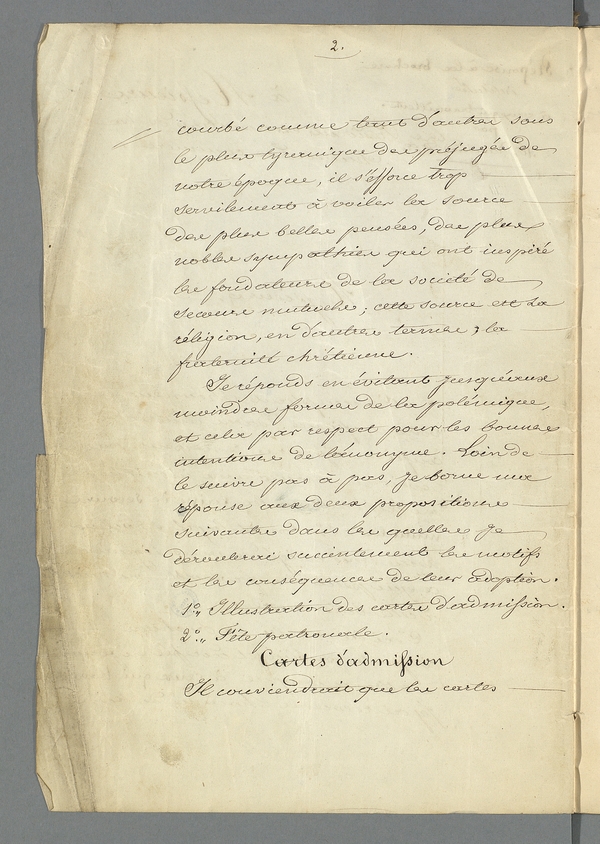 2.
courbé comme tant d'autres sous
le plus tyrannique des préjugés de
notre époque, il s'efforce trop
servilement à voiler la source
des plus belles pensées, des plus
nobles sympathies qui ont inspiré
les fondateurs de la société de
secours mutuels; cette source est la
réligion, en d'autres termes, la
fraternité chrétienne.
Je réponds en évitant jusqu'aux
moindres formes de la polémique,
et cela par respect pour les bonnes
intentions de l'anonyme. Loin de
le suivre pas à pas, je borne ma
réponse aux deux propositions
suivantes dans les quelles je
déroulerai succintement les motifs
et les conséquences de leur adoption.
1º,, Illustration des cartes d'admission.
2º,, Fête patronale.
Cartes d'admission
Il conviendrait que les cartes